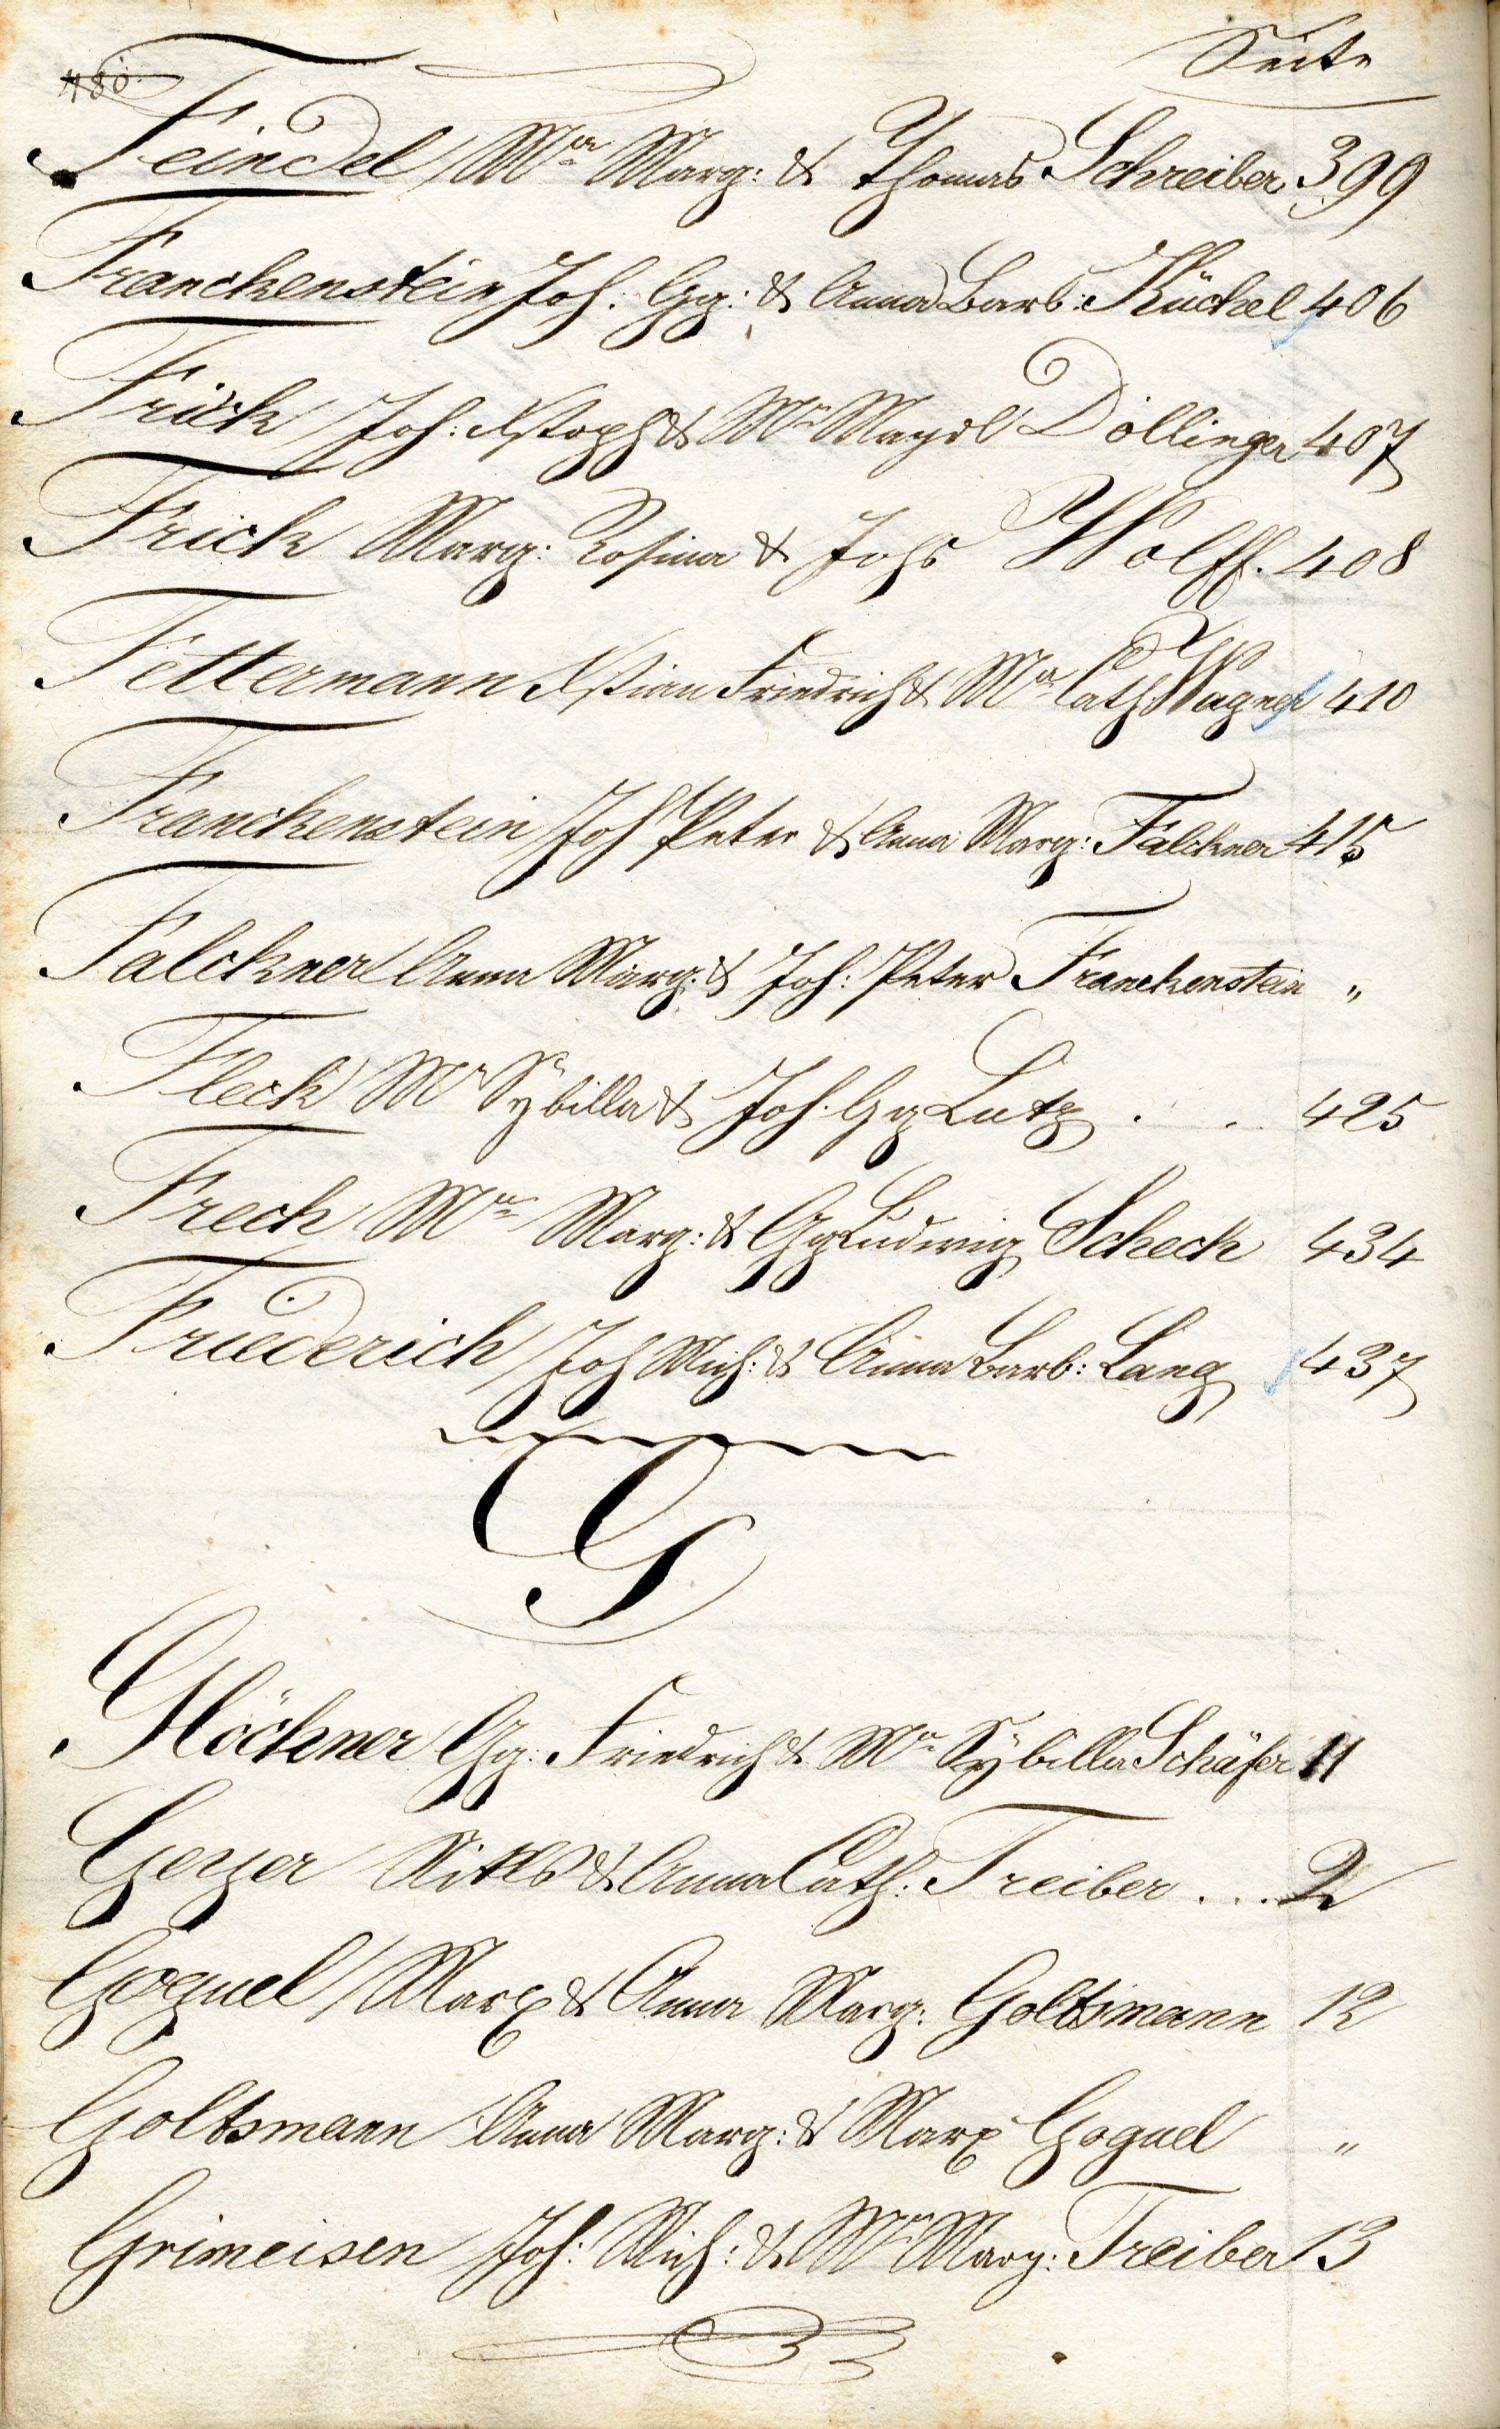 480.
Seite
Feindel Mª Marg: & Thomas Schreiber 399
Franckenstein Joh. Gg: & Anna Barb: Küchel 406
Frick Joh: Xstoph & Mª Magdl Döllinger 407
Frick Marg: Rosina & Johs Wolff. 408
Fettermann Xstian Friedrich & Mª Cath Wagner 410
Franckenstein Joh Peter & Anna Marg: Falckner 415
Falckner Anna Marg: & Joh: Peter Franckenstein "
Fleck Mª Sÿbilla & Joh. Gg Lutz . . 425
Frech Mª Marg: & Gg Ludwig Scheck 434
Friederich Joh Mich: & Anna Barb: Lang 437
G
Glöckner Gg: Friedrich & Mª Sÿbilla Schäfer 11
Geyer Nikls & Anna Cath: Treiber . . . 2
Goguel Marx & Anna Marg: Goltsmann 12
Goltsmann Anna Marg: & Marx Goguel "
Grimeisen Joh: Mich: & Mª Marg: Treiber 13